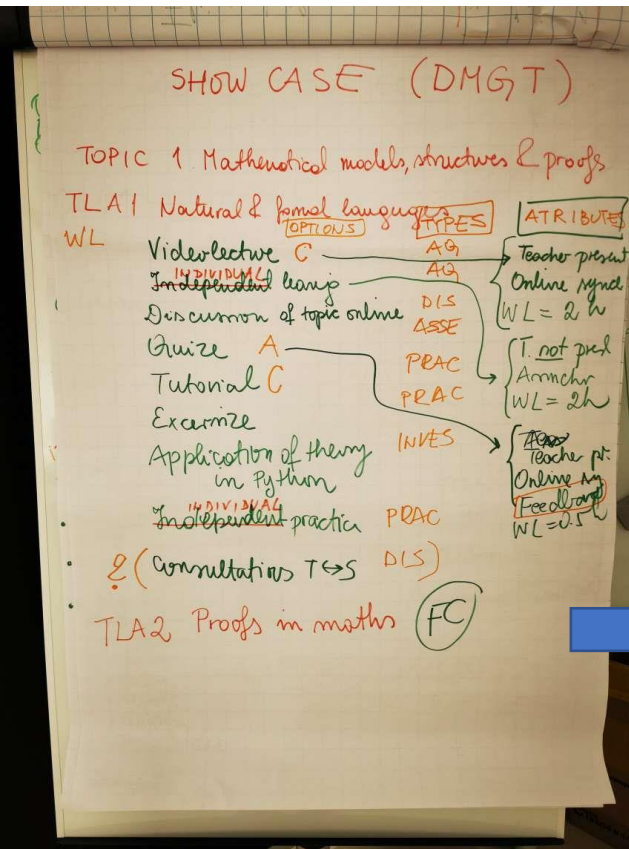 SHOW CASE (DMGT)
TOPIC 1 Mathematical models, structures & proofs
TLA1 Natural & formal languages
OPTIONS TYPES ATRIBUTES
WL
Videolective C AQ
INDIVIDUAL
Independent learnig AQ
Discussion of topic online DIS
Quize A ASSE
Tutorial C PRAC
Excernize PRAC
Application of theory
in Python INVES
INDIVIDUAL
Independent practice PRAC
? (Consultations T↔S DIS)
TLA2 Proofs in maths FC
Teacher present
Online synd
WL = 2 h
T. not pres
WL = 2h
Teacher pr.
Online sy
Feedback
WL = 0.5 h